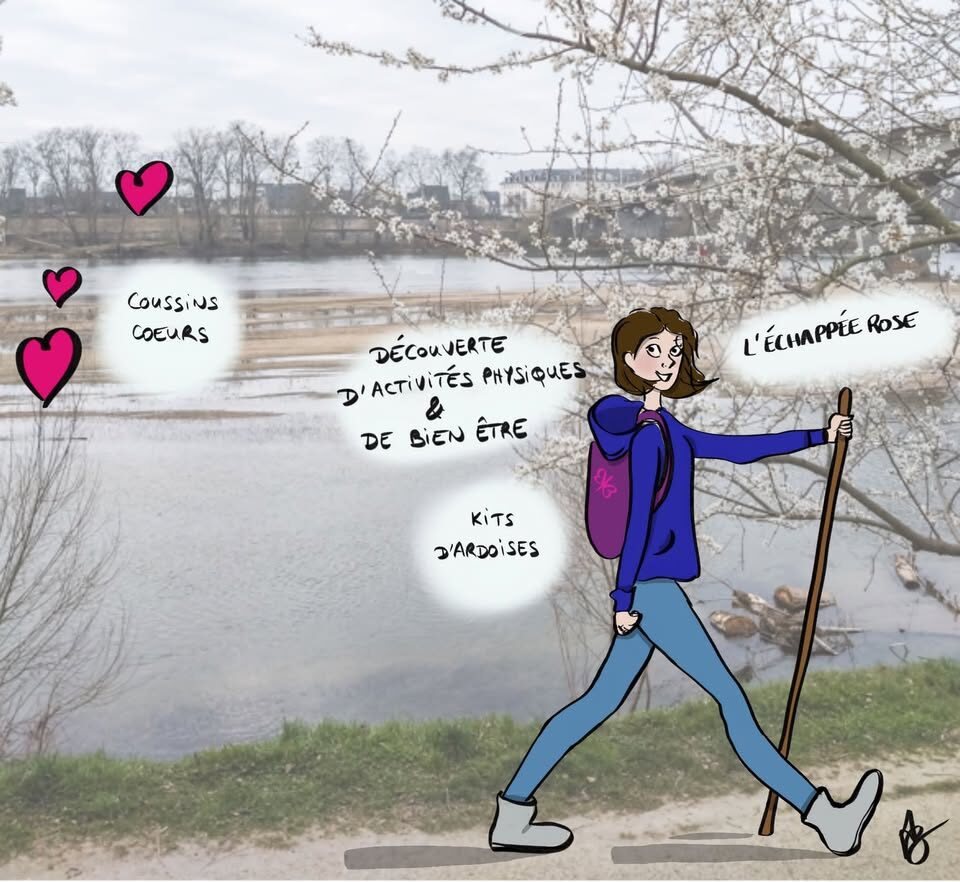 COUSSINS
COEURS
DÉCOUVERTE
D'ACTIVITÉS PHYSIQUES
&
DE BIEN ÊTRE
L'ÉCHAPPÉE ROSE
KITS
D'ARDOISES